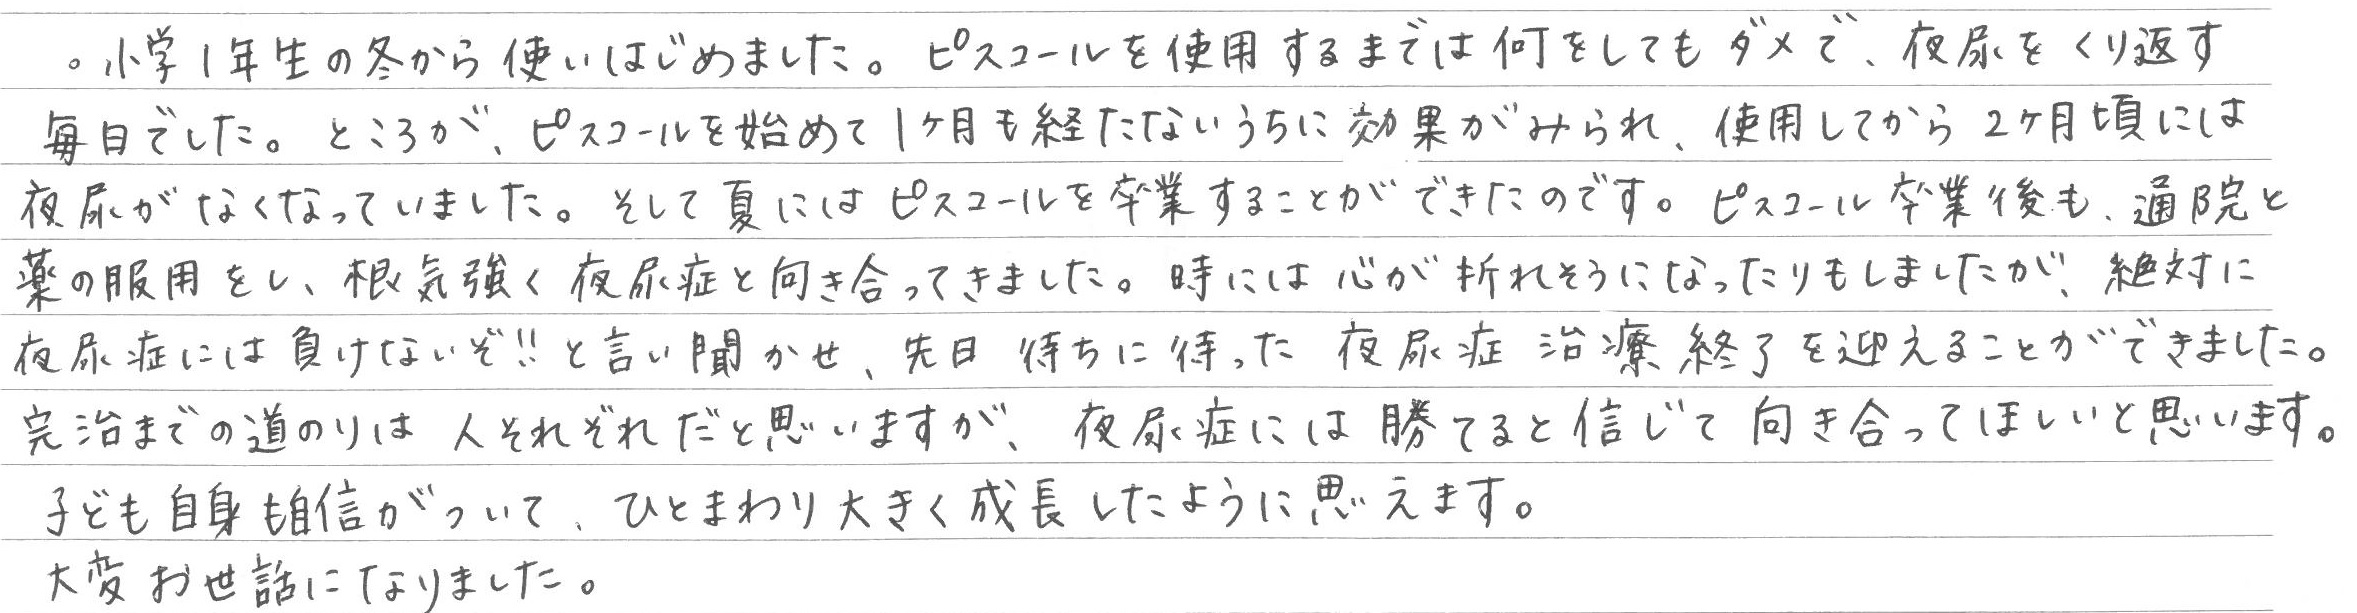 。小学1年生の冬から使いはじめました。ピスコールを使用するまでは何をしてもダメで、夜尿をくり返す
毎日でした。ところが、ピスコールを始めて1ケ月も経たないうちに効果がみられ、使用してから2ケ月頃には
夜尿がなくなっていました。そして夏にはピスコールを卒業することができたのです。ピスコール卒業後も、通院と
薬の服用をし、根気強く夜尿症と向き合ってきました。時には心が折れそうになったりもしましたが、絶対に
夜尿症には負けないぞ!!と言い聞かせ、先日待ちに待った夜尿症治療終了を迎えることができました。
完治までの道のりは人それぞれだと思いますが、夜尿症には勝てると信じて向き合ってほしいと思います。
子ども自身も自信がついて、ひとまわり大きく成長したように思えます。
大変お世話になりました。